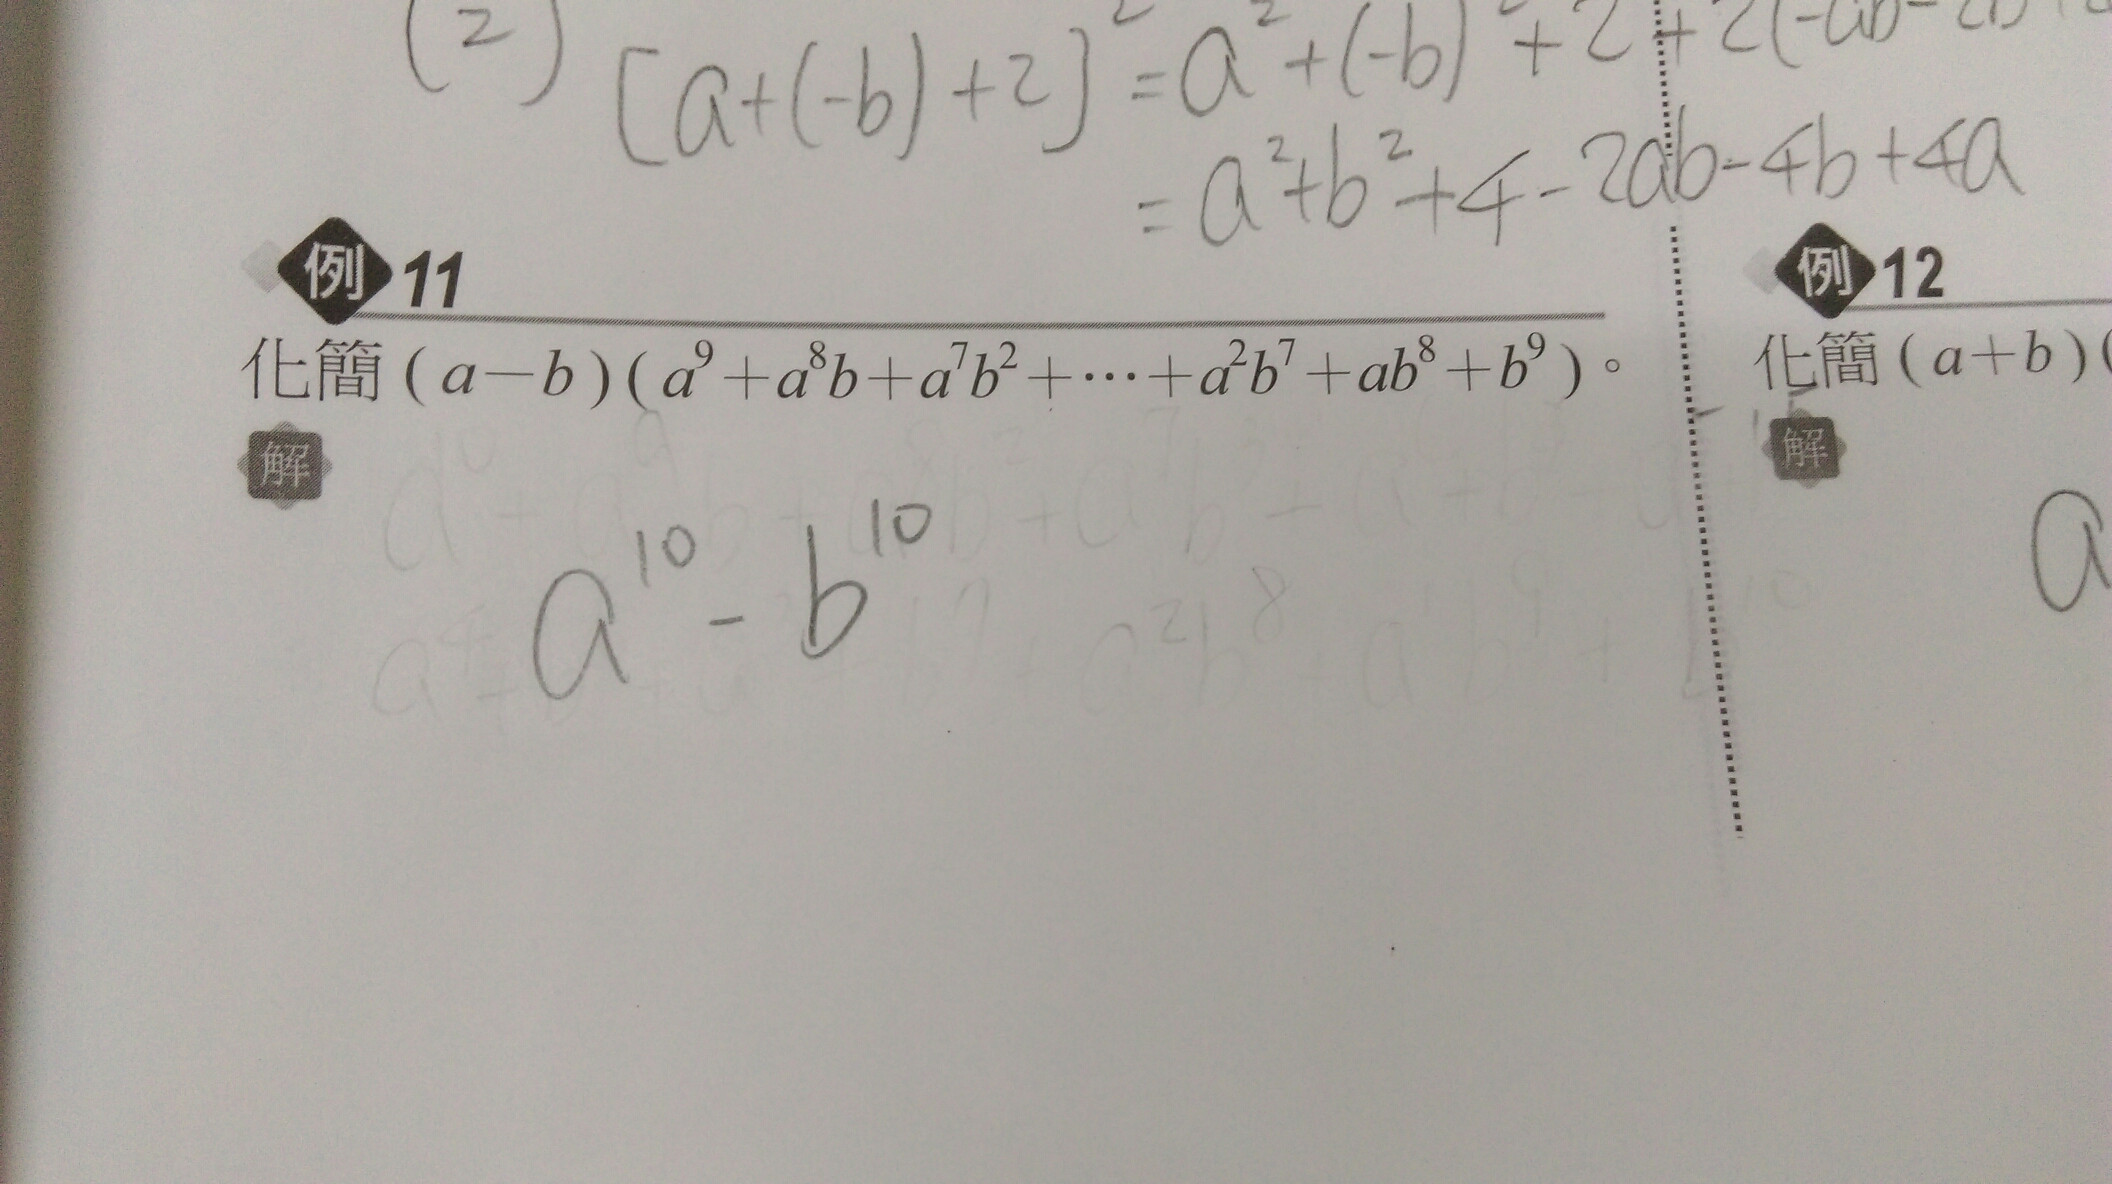 (2) [a+(-b)+2]² = a²+(-b)²+2²+2(-ab-2b+2
= a²+b²+4-2ab-4b+4a
例 11
化簡(a－b)(a⁹+a⁸b+a⁷b²+⋯+a²b⁷+ab⁸+b⁹)。
解
a¹⁰-b¹⁰
例 12
化簡(a+b)(
解
a